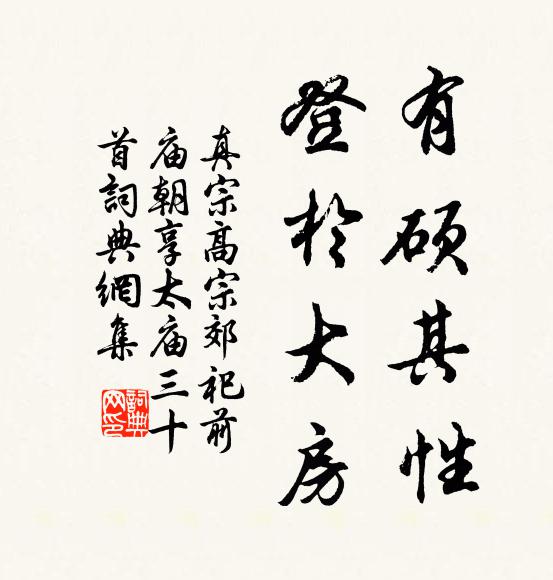 有硕其性
登於大房
真宗高宗郊祀前
庙朝享太庙三十
首詞典網集
詞典网印